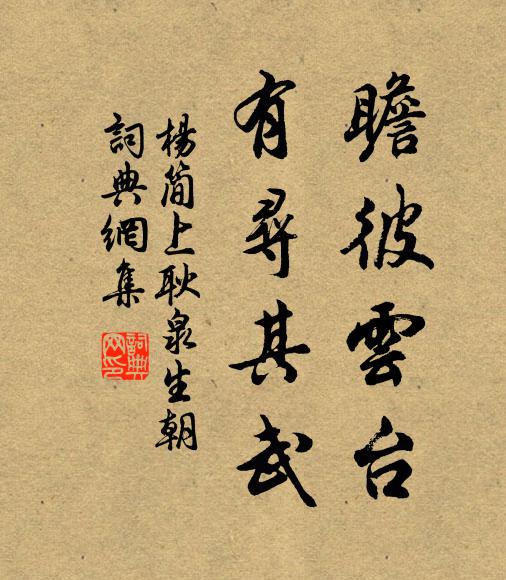 瞻彼雲台
有尋其武
楊簡上耿泉生朝
詞典網集
詞典網印